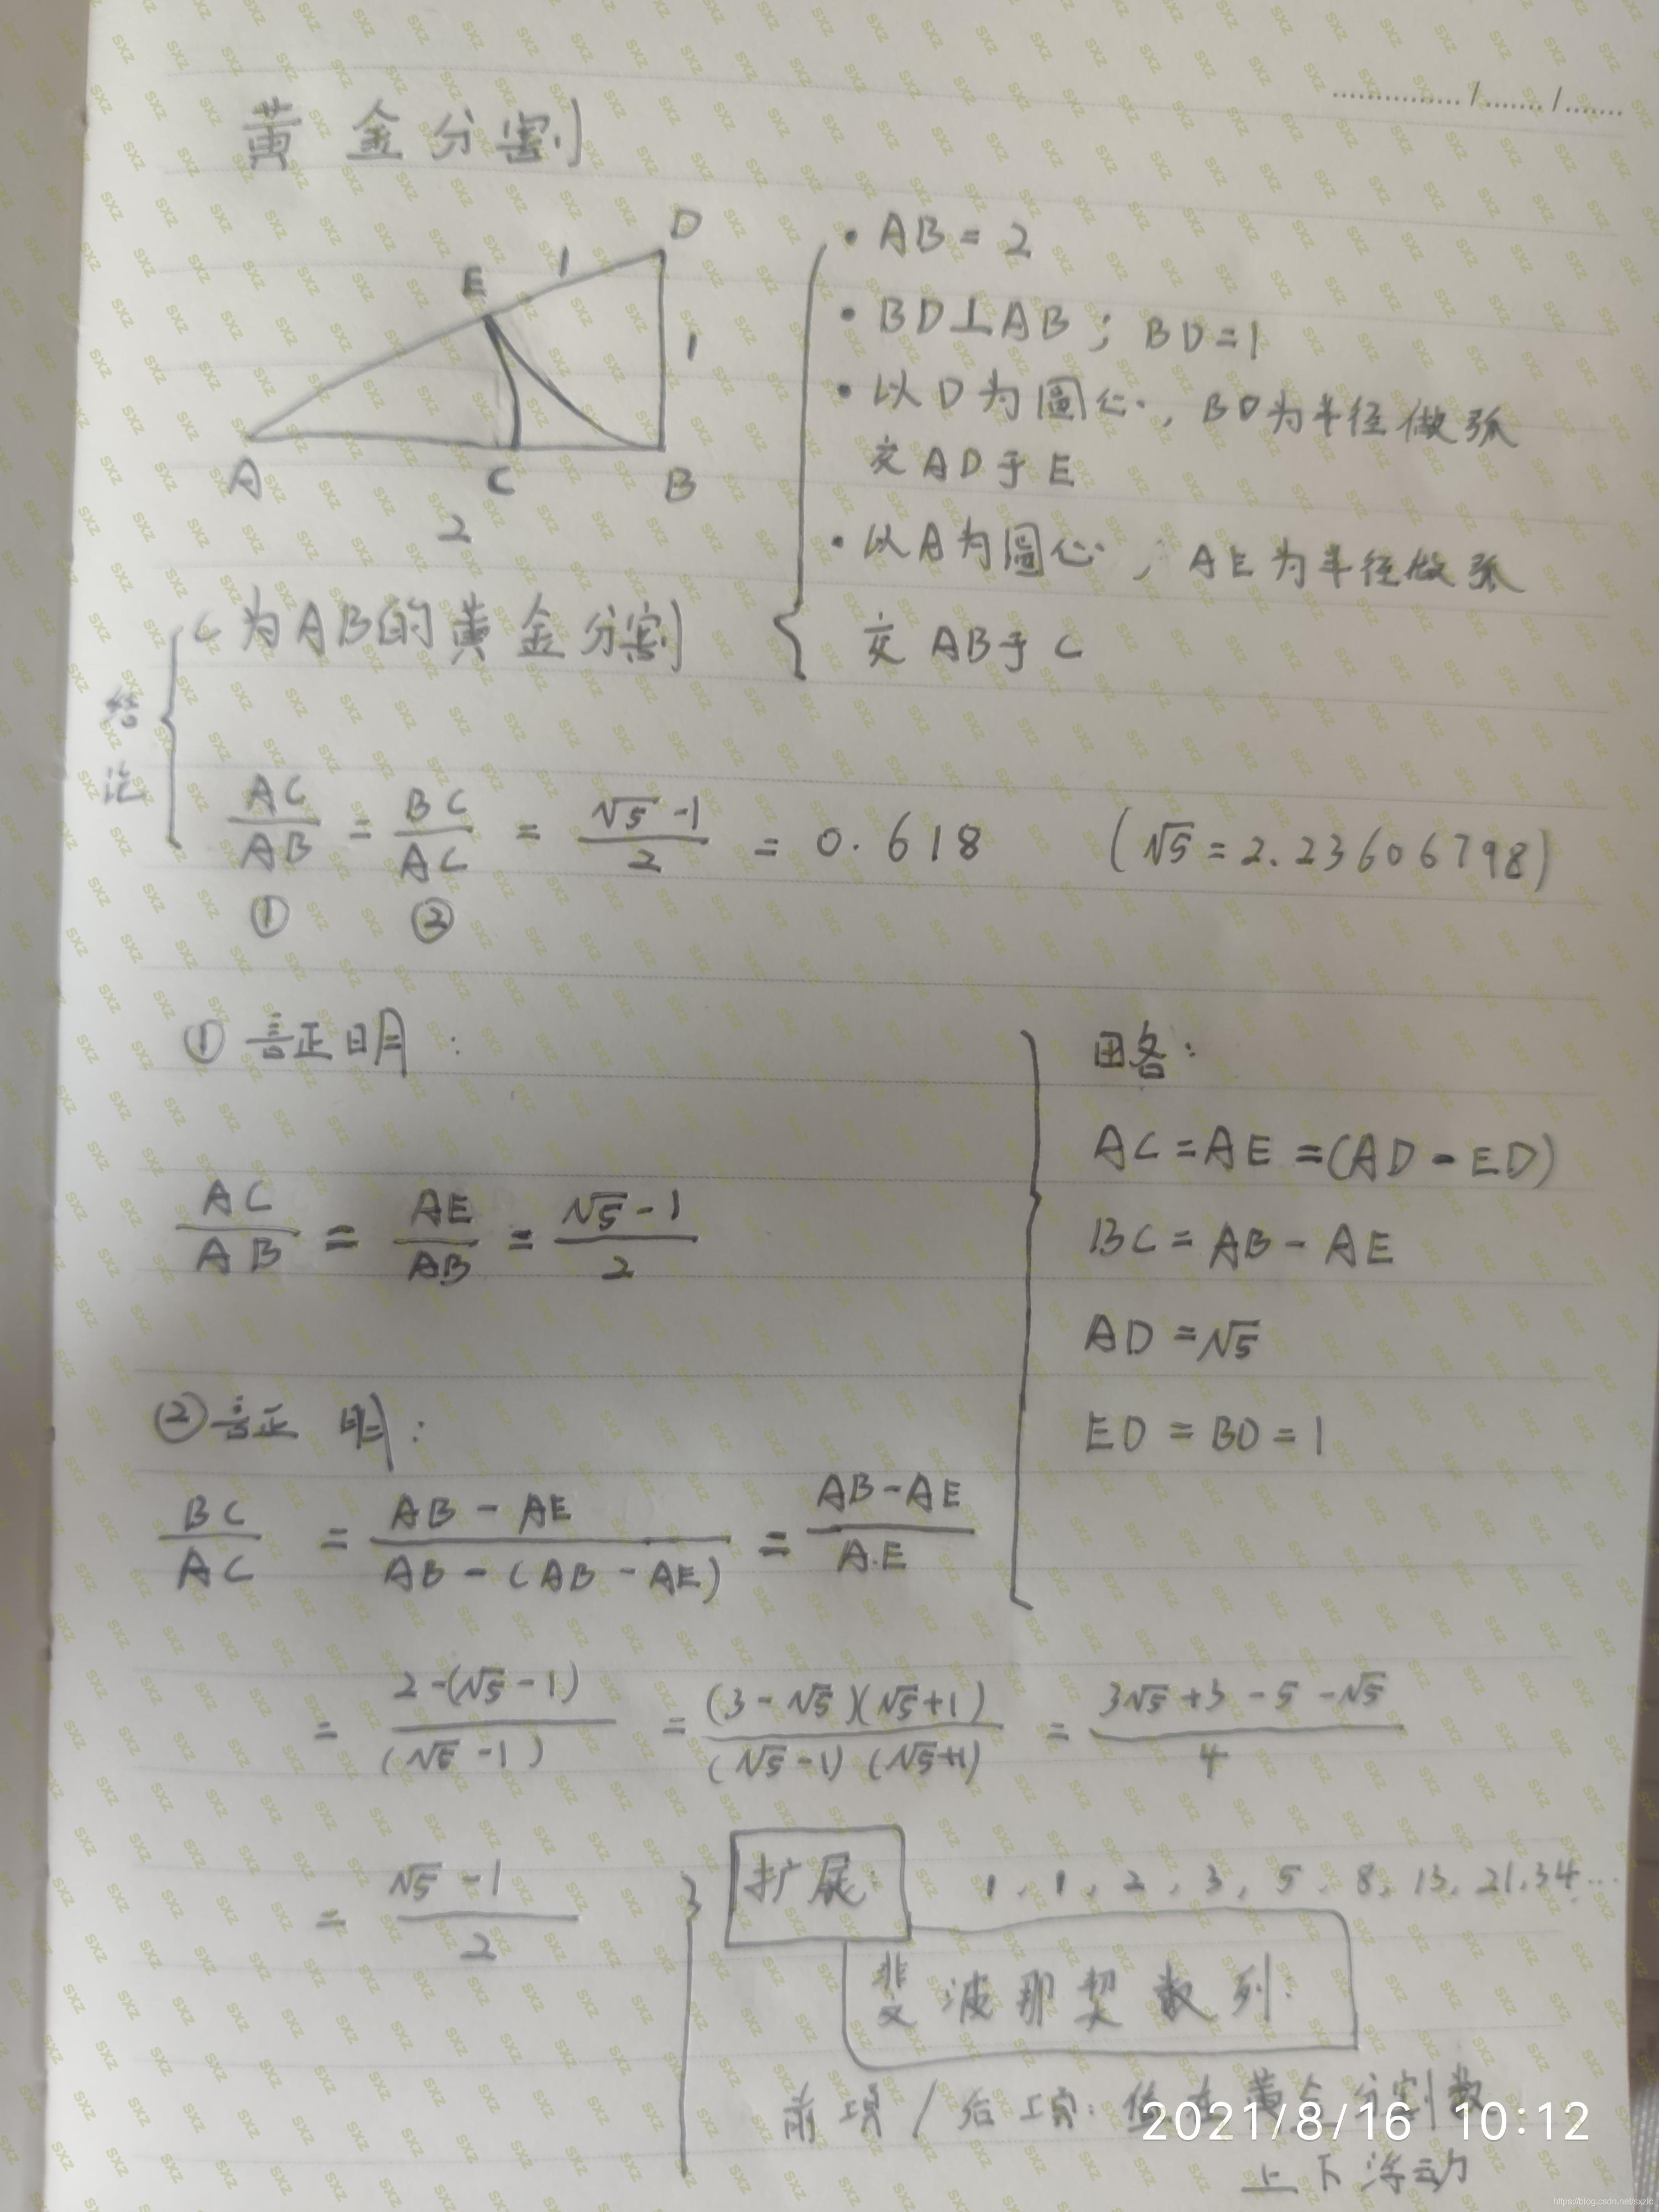 黄金分割
D
E 1
1
A C B
2
• AB = 2
• BD⊥AB ; BD=1
• 以D为圆心, BD为半径做弧
交AD于E
• 以A为圆心, AE为半径做弧
交AB于C
结论
C为AB的黄金分割
AC/AB = BC/AC = (√5-1)/2 = 0.618 (√5=2.23606798)
① ②
① 证明:
AC/AB = AE/AB = (√5-1)/2
AC=AE=(AD-ED)
BC=AB-AE
AD=√5
ED=BD=1
② 证明:
BC/AC = (AB-AE)/(AB-(AB-AE)) = (AB-AE)/AE
= (2-(√5-1))/(√5-1) = (3-√5)(√5+1)/(√5-1)(√5+1) = (3√5+3-5-√5)/4
= (√5-1)/2
扩展: 1, 1, 2, 3, 5, 8, 13, 21, 34...
斐波那契数列:
前项/后项: 值在黄金分割数
上下浮动
2021/8/16 10:12
https://blog.csdn.net/sxzlc
SXZ